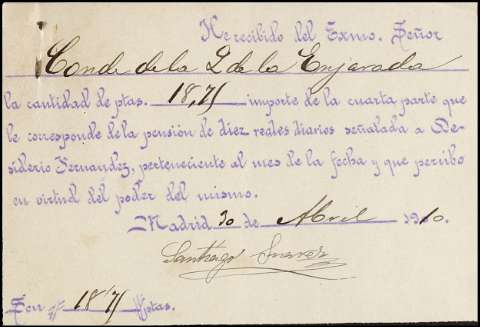 He recibido del Exmo. Señor
Conde de la Q de la Enjarada
la cantidad de ptas. 18,75 importe de la cuarta parte que
le corresponde de la pensión de diez reales diarios señalada a De-
siderio Fernandez, perteneciente al mes de la fecha y que percibo
en virtud del poder del mismo.
Madrid 30 de Abril 1910.
Santiago Suarez
Son 18'75 ptas.